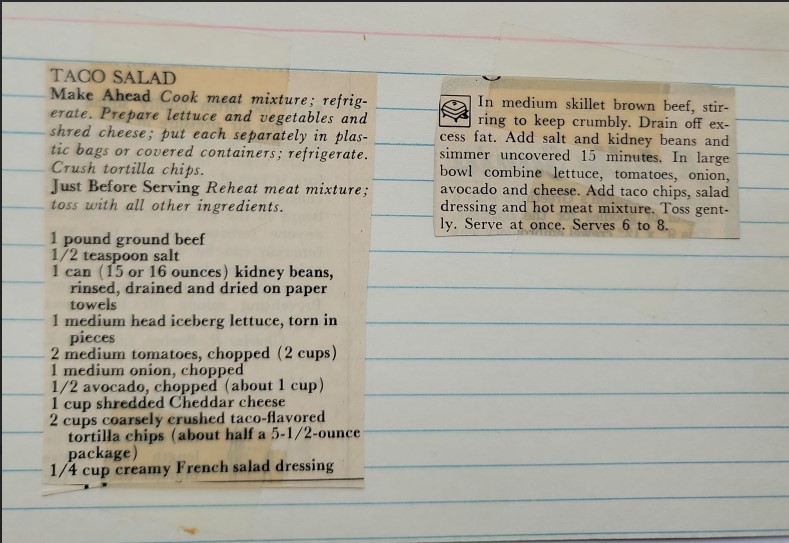 TACO SALAD
Make Ahead Cook meat mixture; refrig-
erate. Prepare lettuce and vegetables and
shred cheese; put each separately in plas-
tic bags or covered containers; refrigerate.
Crush tortilla chips.
Just Before Serving Reheat meat mixture;
toss with all other ingredients.
1 pound ground beef
1/2 teaspoon salt
1 can (15 or 16 ounces) kidney beans,
rinsed, drained and dried on paper
towels
1 medium head iceberg lettuce, torn in
pieces
2 medium tomatoes, chopped (2 cups)
1 medium onion, chopped
1/2 avocado, chopped (about 1 cup)
1 cup shredded Cheddar cheese
2 cups coarsely crushed taco-flavored
tortilla chips (about half a 5-1/2-ounce
package)
1/4 cup creamy French salad dressing
In medium skillet brown beef, stir-
ring to keep crumbly. Drain off ex-
cess fat. Add salt and kidney beans and
simmer uncovered 15 minutes. In large
bowl combine lettuce, tomatoes, onion,
avocado and cheese. Add taco chips, salad
dressing and hot meat mixture. Toss gent-
ly. Serve at once. Serves 6 to 8.